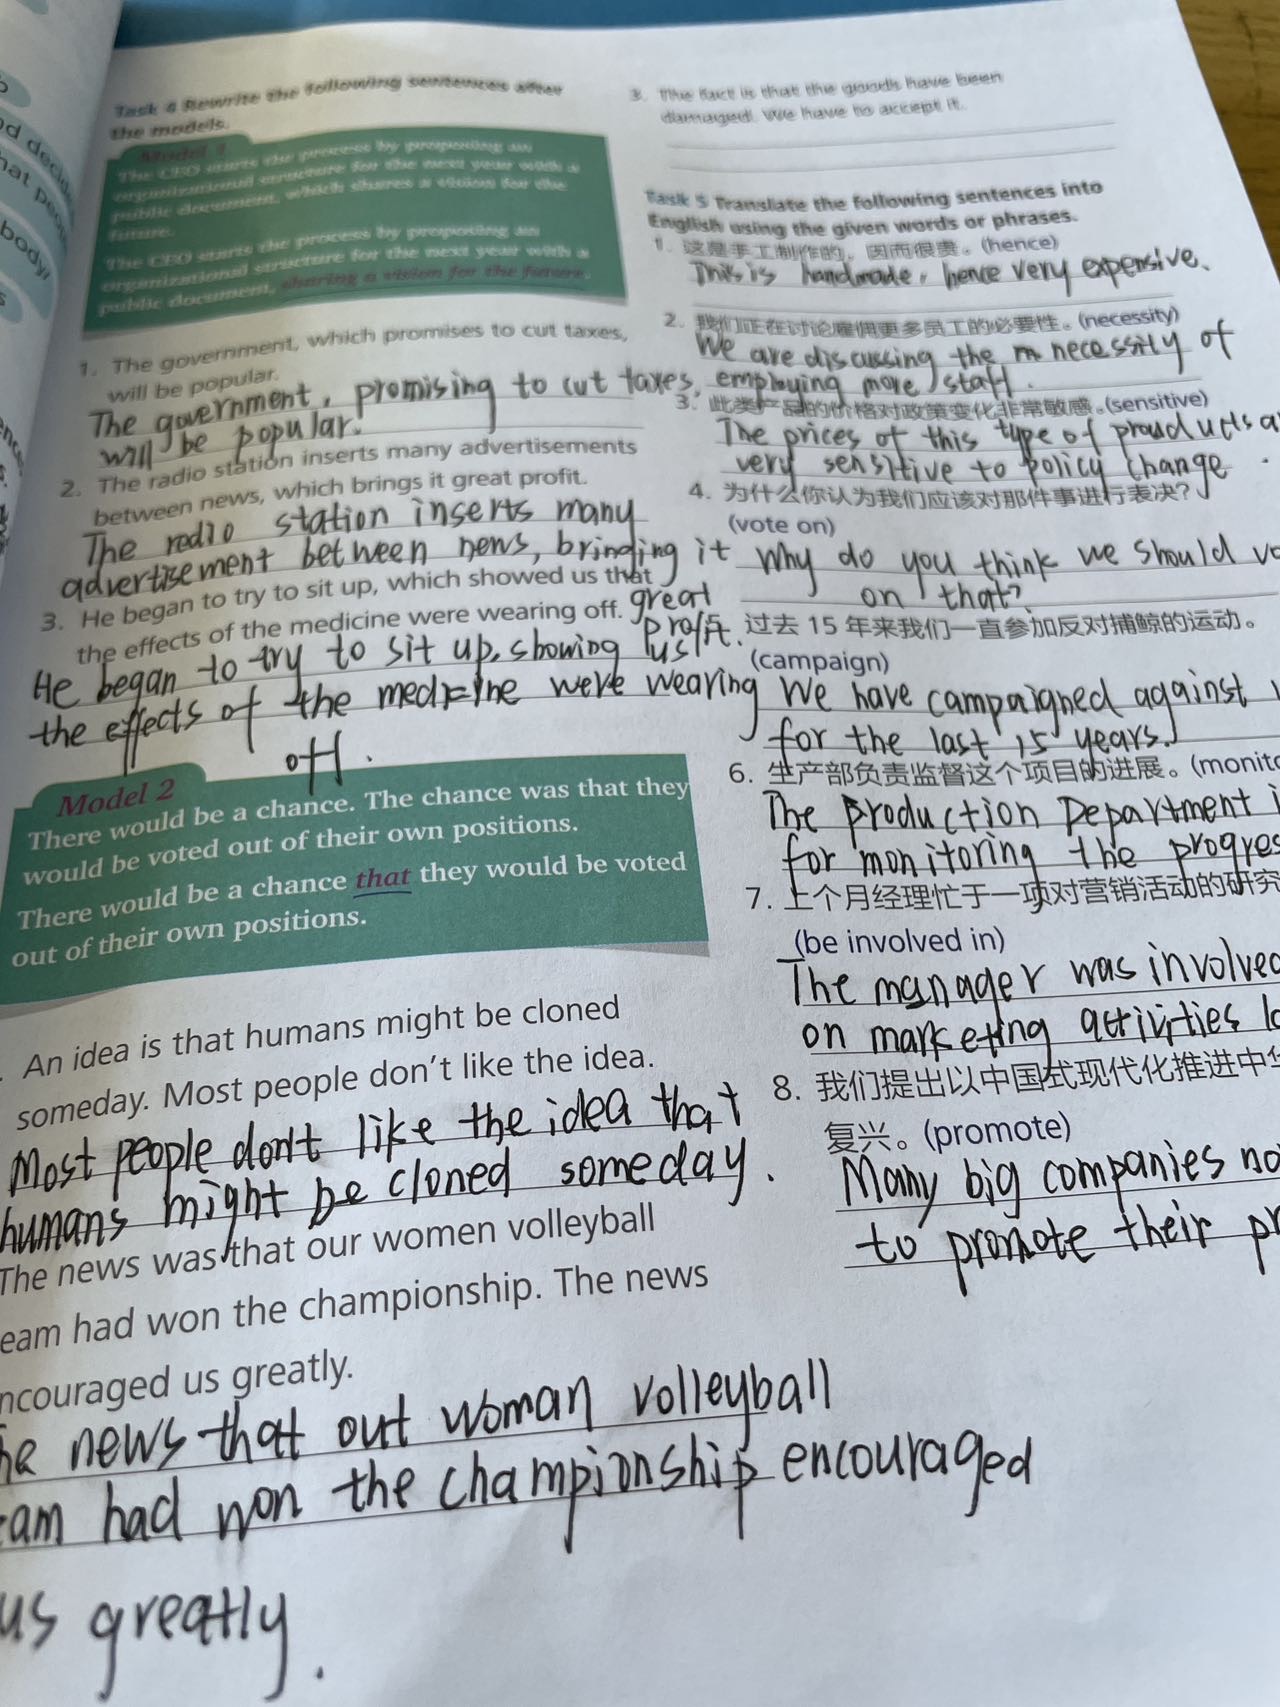 Task 4 Rewrite the following sentences after
the models.
Model 1
The CEO starts the process by proposing an
organizational structure for the next year with a
public document, which shares a vision for the
future.
The CEO starts the process by proposing an
organizational structure for the next year with a
public document, sharing a vision for the future.
1. The government, which promises to cut taxes,
will be popular.
The government, promising to cut taxes,
will be popular.
2. The radio station inserts many advertisements
between news, which brings it great profit.
The redio station inserts many
advertisement between news, bringing it
great
profit.
3. He began to try to sit up, which showed us that
the effects of the medicine were wearing off.
He began to try to sit up, showing us
the effects of the medicine were wearing
off.
Model 2
There would be a chance. The chance was that they
would be voted out of their own positions.
There would be a chance that they would be voted
out of their own positions.
An idea is that humans might be cloned
someday. Most people don't like the idea.
Most people don't like the idea that
humans might be cloned someday.
The news was that our women volleyball
eam had won the championship. The news
ncouraged us greatly.
he news that out woman volleyball
eam had won the championship encouraged
us greatly.
3. The fact is that the goods have been
damaged. We have to accept it.
Task 5 Translate the following sentences into
English using the given words or phrases.
1. 这是手工制作的，因而很贵。(hence)
This is handmade, hence very expensive.
2. 我们正在讨论雇佣更多员工的必要性。(necessity)
We are discussing the necessity of
employing more staff.
3. 此类产品的价格对政策变化非常敏感。(sensitive)
The prices of this type of prouducts a
very sensitive to policy change.
4. 为什么你认为我们应该对那件事进行表决？
(vote on)
Why do you think we should vo
on that?
过去 15 年来我们一直参加反对捕鲸的运动。
(campaign)
We have campaigned against
for the last 15 years.
6. 生产部负责监督这个项目的进展。(monito
The Production Department i
for monitoring the progres
7. 上个月经理忙于一项对营销活动的研究
(be involved in)
The manager was involved
on marketing activities la
8. 我们提出以中国式现代化推进中华
复兴。(promote)
Many big companies no
to promote their pr